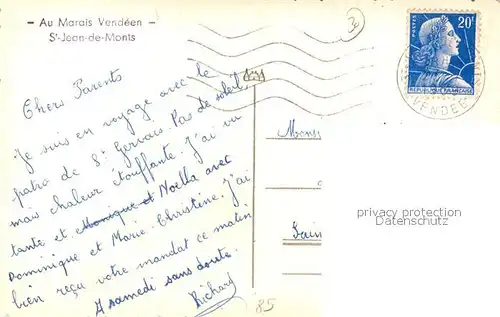 - Au Marais Vendéen -
St-Jean-de-Monts
Chers Parents
Je suis en voyage avec le
patro de St Gervais. Pas de soleil,
mais chaleur étouffante. J'ai vu
tante et Monique et Noella avec
Dominique et Marie-Christine. J'ai
bien reçu votre mandat ce matin
A samedi sans doute.
Richard
30
POSTES
20F
REPUBLIQUE FRANÇAISE
VENDEE
Mons
privacy protection
Datenschutz
Sain
85